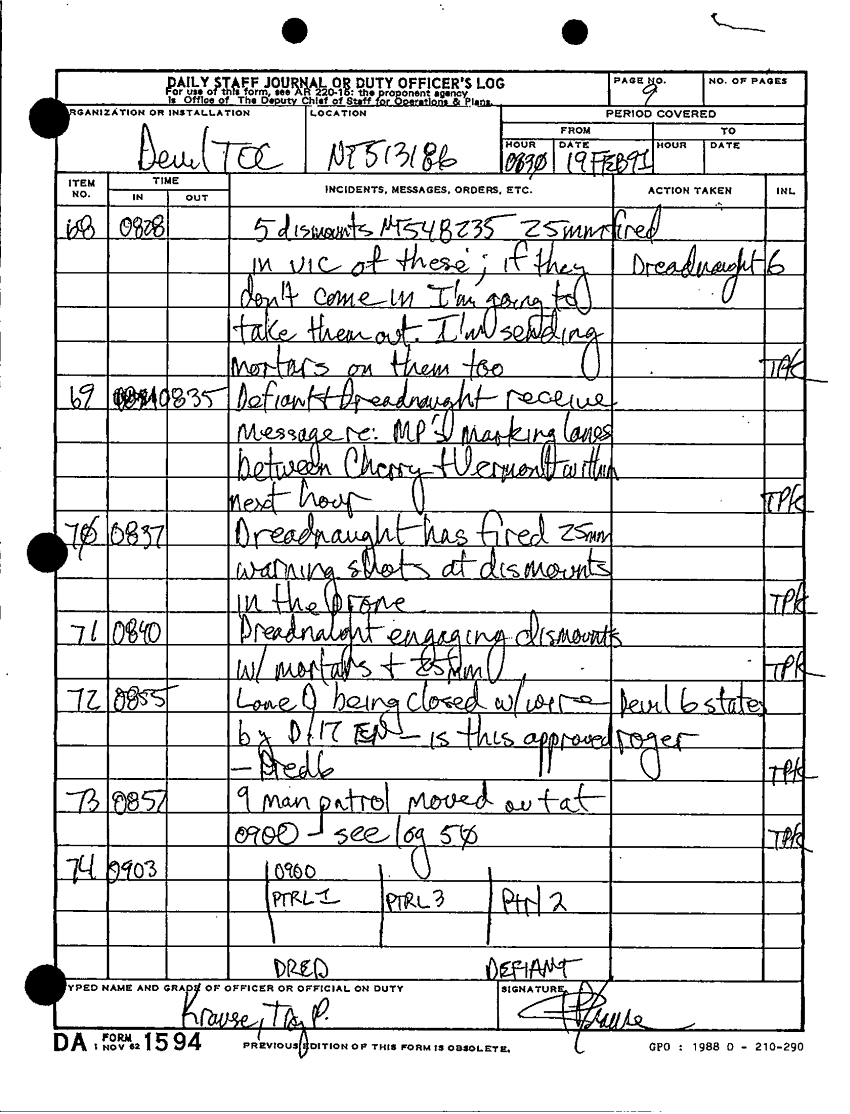 DAILY STAFF JOURNAL OR DUTY OFFICER'S LOG
For use of this form, see AR 220-15: the proponent agency
is Office of The Deputy Chief of Staff for Operations & Plans.
PAGE NO.
9
NO. OF PAGES
RGANIZATION OR INSTALLATION
Devil TOC
LOCATION
NT513186
PERIOD COVERED
FROM
TO
HOUR
DATE
HOUR
DATE
19 FEB 91
ITEM NO.
TIME
IN
OUT
INCIDENTS, MESSAGES, ORDERS, ETC.
ACTION TAKEN
INL
68 0828 5 dismounts NT548235 25mm fired
in vic of these; if they Dreadnaught 6
don't come in I'm going to
take them out. I'm sending
mortars on them too TPK
69 0835 Defiant + Dreadnaught receive
message re: MP's marking lanes
between Cherry + Vermont within
next hour TPK
7Ø 0837 Dreadnaught has fired 25mm
warning shots at dismounts
in the TPK
71 0840 Dreadnaught engaging dismounts
w/ mortars + 25mm TPK
72 0855 Lane Q being closed w/ wire Devil 6 states
by D/17 EN — is this approved roger
— Dred6 TPK
73 0857 9 man patrol moved out at
0900 — see log 5Ø TPK
74 0903 0900
PTRL 1 PTRL 3 2
DRED DEFIANT
TYPED NAME AND GRADE OF OFFICER OR OFFICIAL ON DUTY
Krause, P.
SIGNATURE
Krause
DA FORM 1 NOV 62 1594
PREVIOUS EDITION OF THIS FORM IS OBSOLETE.
GPO : 1988 O - 210-290